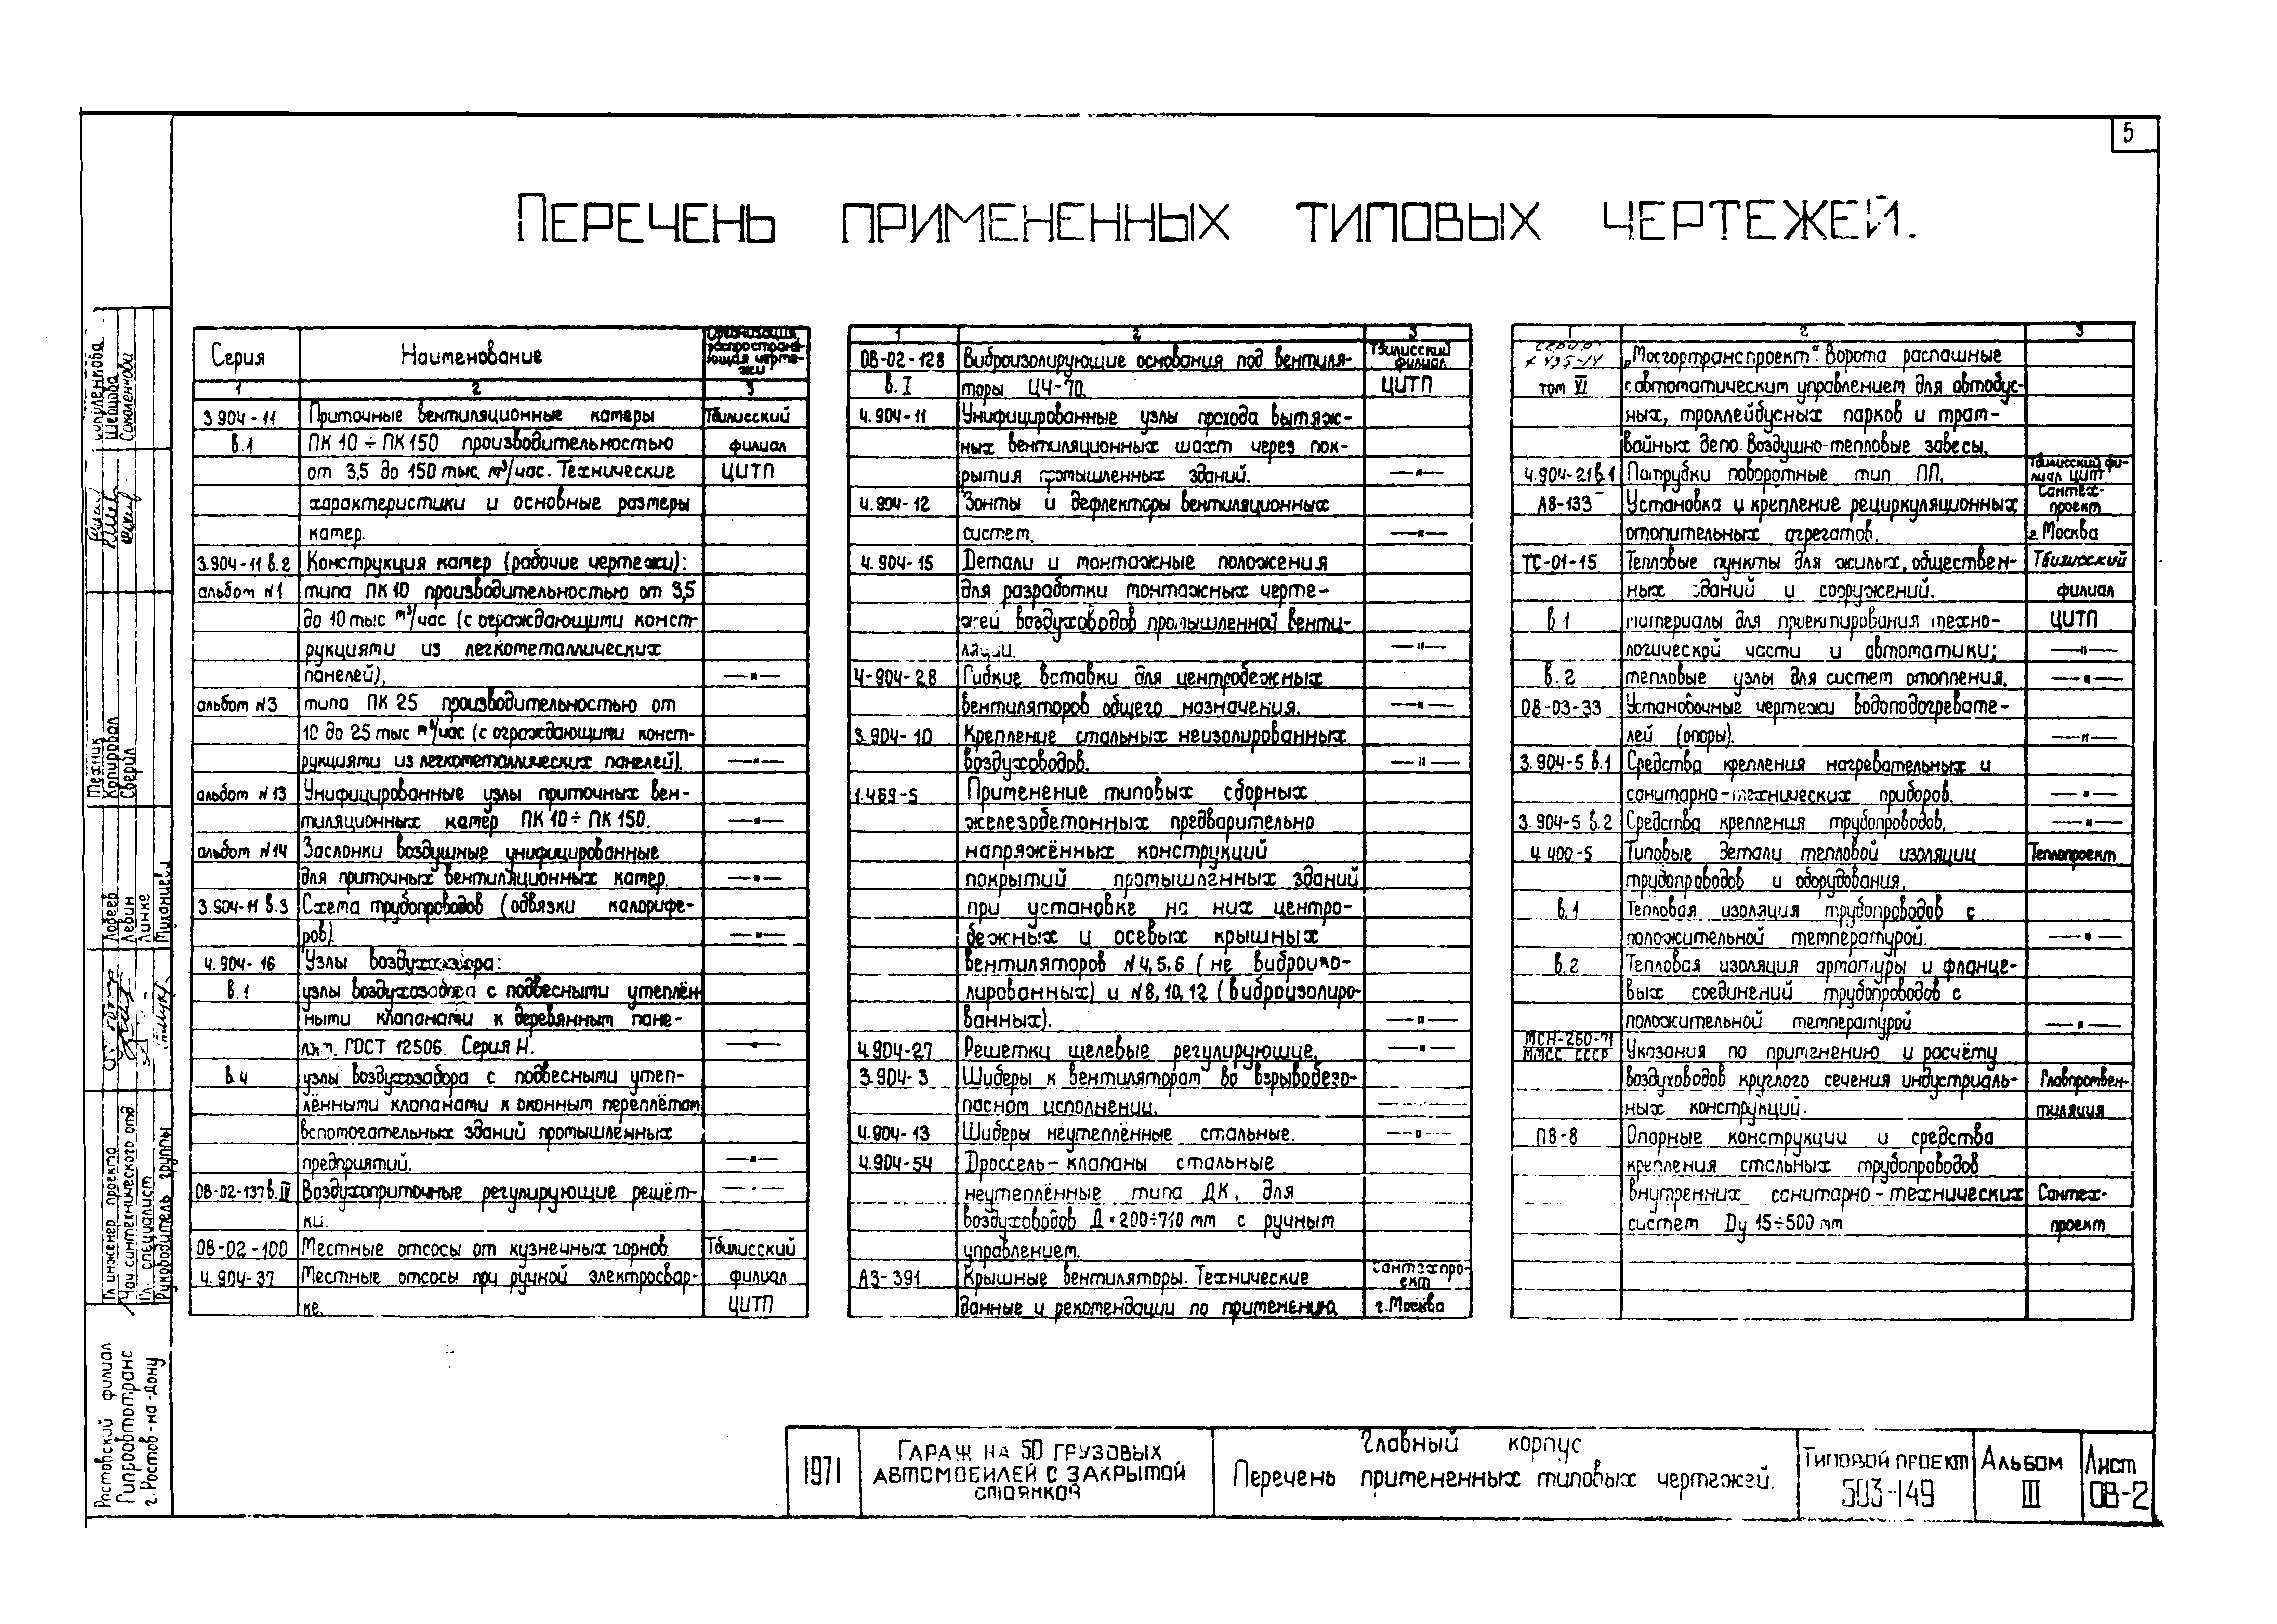 5
ПЕРЕЧЕНЬ ПРИМЕНЕННЫХ ТИПОВЫХ ЧЕРТЕЖЕЙ.
Серия Наименование Организация, распространяющая чертежи
1 2 3
3.904-11 Приточные вентиляционные камеры Тбилисский
в.1 ПК 10 ÷ ПК 150 производительностью филиал
от 3,5 до 150 тыс. м³/час. Технические ЦИТП
характеристики и основные размеры
камер.
3.904-11 в.2 Конструкция камер (рабочие чертежи):
альбом №1 типа ПК 10 производительностью от 3,5
до 10 тыс м³/час (с ограждающими конст-
рукциями из легкометаллических
панелей), —"—
альбом №3 типа ПК 25 производительностью от
10 до 25 тыс м³/час (с ограждающими конст-
рукциями из легкометаллических панелей). —"—
альбом №13 Унифицированные узлы приточных вен-
тиляционных камер ПК 10 ÷ ПК 150. —"—
альбом №14 Заслонки воздушные унифицированные
для приточных вентиляционных камер. —"—
3.904-11 в.3 Схема трубопроводов (обвязки калорифе-
ров). —"—
4.904-16 Узлы воздухозабора:
в.1 узлы воздухозабора с подвесными утеплён-
ными клапанами к деревянным пане-
лям. ГОСТ 12506. Серия Н. —"—
в.4 узлы воздухозабора с подвесными утеп-
лёнными клапанами к оконным переплётам
вспомогательных зданий промышленных
предприятий. —"—
ОВ-02-137 в.IV Воздухоприточные регулирующие решёт- —"—
ки.
ОВ-02-100 Местные отсосы от кузнечных горнов. Тбилисский
4.904-37 Местные отсосы при ручной электросвар- филиал
ке. ЦИТП
1 2 3
ОВ-02-128 Виброизолирующие основания под вентиля- Тбилисский филиал
в.I торы Ц4-70. ЦИТП
4.904-11 Унифицированные узлы прохода вытяж-
ных вентиляционных шахт через пок-
рытия промышленных зданий. —"—
4.904-12 Зонты и дефлекторы вентиляционных
систем. —"—
4.904-15 Детали и монтажные положения
для разработки монтажных черте-
жей воздуховодов промышленной венти-
ляции. —"—
4-904-28 Гибкие вставки для центробежных
вентиляторов общего назначения. —"—
3.904-10 Крепление стальных неизолированных
воздуховодов. —"—
1.469-5 Применение типовых сборных
железобетонных предварительно
напряжённых конструкций
покрытий промышленных зданий
при установке на них центро-
бежных и осевых крышных
вентиляторов №4,5,6 (не виброизо-
лированных) и №8,10,12 (виброизолиро-
ванных). —"—
4.904-27 Решетки щелевые регулирующие. —"—
3.904-3 Шиберы к вентиляторам во взрывобезо-
пасном исполнении.
4.904-13 Шиберы неутеплённые стальные. —"—
4.904-54 Дроссель-клапаны стальные
неутеплённые типа ДК, для
воздуховодов Д=200÷710 мм с ручным
управлением.
А3-391 Крышные вентиляторы. Технические Сантехпроект
данные и рекомендации по применению г.Москва
1 2 3
серия „Мосгортранспроект". Ворота распашные
том VI с автоматическим управлением для автобус-
ных, троллейбусных парков и трам-
вайных депо. Воздушно-тепловые завесы.
4.904-21 в.1 Патрубки поворотные тип ПП. Тбилисский филиал ЦИТП
А8-133 Установка и крепление рециркуляционных Сантех-проект
отопительных агрегатов. г.Москва
ТС-01-15 Тепловые пункты для жилых, обществен- Тбилисский
ных зданий и сооружений. филиал
в.1 материалы для проектирования техно- ЦИТП
логической части и автоматики; —"—
в.2 тепловые узлы для систем отопления. —"—
ОВ-03-33 Установочные чертежи водоподогревате-
лей (опоры). —"—
3.904-5 в.1 Средства крепления нагревательных и
санитарно-технических приборов. —"—
3.904-5 в.2 Средства крепления трубопроводов. —"—
4.400-5 Типовые детали тепловой изоляции Теплопроект
трубопроводов и оборудования.
в.1 Тепловая изоляция трубопроводов с
положительной температурой. —"—
в.2 Тепловая изоляция арматуры и фланце-
вых соединений трубопроводов с
положительной температурой —"—
МСН-260-71 ММСС СССР Указания по применению и расчёту
воздуховодов круглого сечения индустриаль- Главпромвен-
ных конструкций. тиляция
П8-8 Опорные конструкции и средства
крепления стальных трубопроводов
внутренних санитарно-технических Сантех-
систем Dу 15÷500 мм проект
Шевцова
Соколенкова
Техник
Копировал
Сверил
Лобеев
Левин
Линке
Гл. инженер проекта
Нач. сантехнического отд.
Гл. специалист
Руководитель группы
Ростовский филиал
Гипроавтотранс
г. Ростов-на-Дону
1971
ГАРАЖ НА 50 ГРУЗОВЫХ
АВТОМОБИЛЕЙ С ЗАКРЫТОЙ
СТОЯНКОЙ
Главный корпус
Перечень примененных типовых чертежей.
ТИПОВОЙ ПРОЕКТ
503-149
АЛЬБОМ
III
Лист
ОВ-2